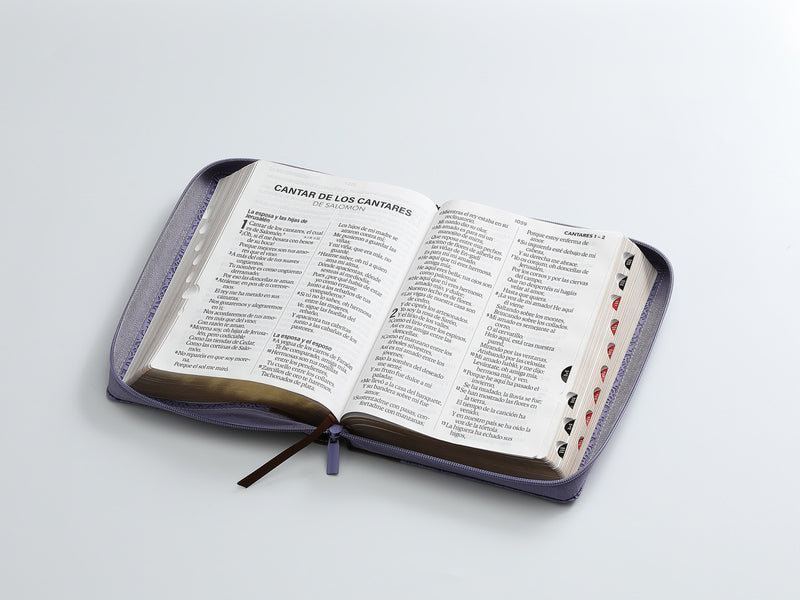 CANTAR DE LOS CANTARES
DE SALOMÓN
La esposa y las hijas de
Jerusalén
1 Cantar de los cantares, el cual
es de Salomón.
2 ¡Oh, si él me besara con besos
de su boca!
Porque mejores son tus amo-
res que el vino.
3 A más del olor de tus suaves
ungüentos,
Tu nombre es como ungüento
derramado;
Por eso las doncellas te aman.
4 Atráeme; en pos de ti corre-
remos.
El rey me ha metido en sus
cámaras;
Nos gozaremos y alegraremos
en ti;
Nos acordaremos de tus amo-
res más que del vino;
Con razón te aman.
5 Morena soy, oh hijas de Jerusa-
lén, pero codiciable
Como las tiendas de Cedar,
Como las cortinas de Salo-
món.
6 No reparéis en que soy more-
na,
Porque el sol me miró.
Los hijos de mi madre se
airaron contra mí;
Me pusieron a guardar las
viñas;
Y mi viña, que era mía, no
guardé.
7 Hazme saber, oh tú a quien
ama mi alma,
Dónde apacientas, dónde
sesteas al mediodía;
Pues ¿por qué había de estar
yo como errante
Junto a los rebaños de tus
compañeros?
8 Si tú no lo sabes, oh hermosa
entre las mujeres,
Ve, sigue las huellas del
rebaño,
Y apacienta tus cabritas
junto a las cabañas de los
pastores.
La esposa y el esposo
9 A yegua de los carros de Faraón
Te he comparado, amiga mía.
10 Hermosas son tus mejillas
entre los pendientes,
Tu cuello entre los collares.
11 Zarcillos de oro te haremos,
Tachonados de plata.
1059
CANTARES 1 – 2
12 Mientras el rey estaba en su
reclinatorio,
Mi nardo dio su olor.
13 Mi amado es para mí un
manojito de mirra,
Que reposa entre mis pechos.
14 Racimo de flores de alheña en
las viñas de En-gadi
Es para mí mi amado.
15 He aquí que tú eres hermosa,
amiga mía;
He aquí eres bella; tus ojos son
como palomas.
16 He aquí que tú eres hermoso,
amado mío, y dulce;
Nuestro lecho es de flores.
17 Las vigas de nuestra casa son
de cedro,
Y de ciprés los artesonados.
2 Yo soy la rosa de Sarón,
Y el lirio de los valles.
2 Como el lirio entre los espinos,
Así es mi amiga entre las
doncellas.
3 Como el manzano entre los
árboles silvestres,
Así es mi amado entre los
jóvenes;
Bajo la sombra del deseado
me senté,
Y su fruto fue dulce a mi
paladar.
4 Me llevó a la casa del banquete,
Y su bandera sobre mí fue
amor.
5 Sustentadme con pasas, con-
fortadme con manzanas;
Porque estoy enferma de
amor.
6 Su izquierda esté debajo de mi
cabeza,
Y su derecha me abrace.
7 Yo os conjuro, oh doncellas de
Jerusalén,
Por los corzos y por las ciervas
del campo,
Que no despertéis ni hagáis
velar al amor,
Hasta que quiera.
8 ¡La voz de mi amado! He aquí
él viene
Saltando sobre los montes,
Brincando sobre los collados.
9 Mi amado es semejante al
corzo,
O al cervatillo.
Helo aquí, está tras nuestra
pared,
Mirando por las ventanas,
Atisbando por las celosías.
10 Mi amado habló, y me dijo:
Levántate, oh amiga mía,
hermosa mía, y ven.
11 Porque aquí ha pasado el
invierno,
Se ha mudado, la lluvia se fue;
12 Se han mostrado las flores en
la tierra,
El tiempo de la canción ha
venido,
Y en nuestro país se ha oído la
voz de la tórtola.
13 La higuera ha echado sus
higos,